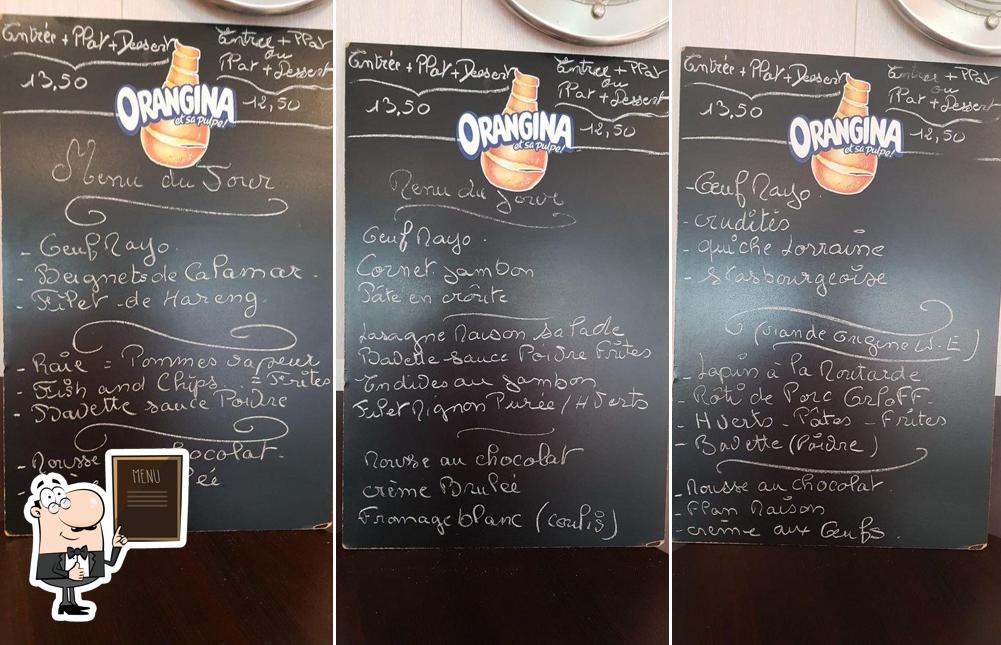 Entrée + Plat + Dessert
13,50
Entrée + Plat
ou
Plat + Dessert
12,50
ORANGINA
et sa pulpe!
Menu du Jour
- Oeuf Mayo.
- Beignets de Calamar.
- Filet de Hareng.
- Raie = Pommes vapeur
- Fish and Chips = Frites
- Bavette sauce Poivre
- Mousse chocolat.
ée
MENU
Entrée + Plat + Dessert
13,50
Entrée + Plat
ou
Plat + Dessert
12,50
ORANGINA
et sa pulpe!
Menu du Jour
Oeuf Mayo.
Cornet jambon
Pâté en croûte
Lasagne Maison salade
Bavette sauce Poivre Frites
Endives au jambon
Filet Mignon Purée / H Verts
Mousse au chocolat
crème Brulée
Fromage blanc (coulis)
Entrée + Plat + Dessert
13,50
Entrée + Plat
ou
Plat + Dessert
12,50
ORANGINA
et sa pulpe!
- Oeuf Mayo.
- crudités
- quiche Lorraine
- strasbourgeoise
(Viande Origine U.E)
- Lapin à la Moutarde
- Rôti de Porc
- H verts - Pâtes - Frites
- Bavette (Poivre)
- Mousse au chocolat
- Flan Maison
- crème aux Oeufs